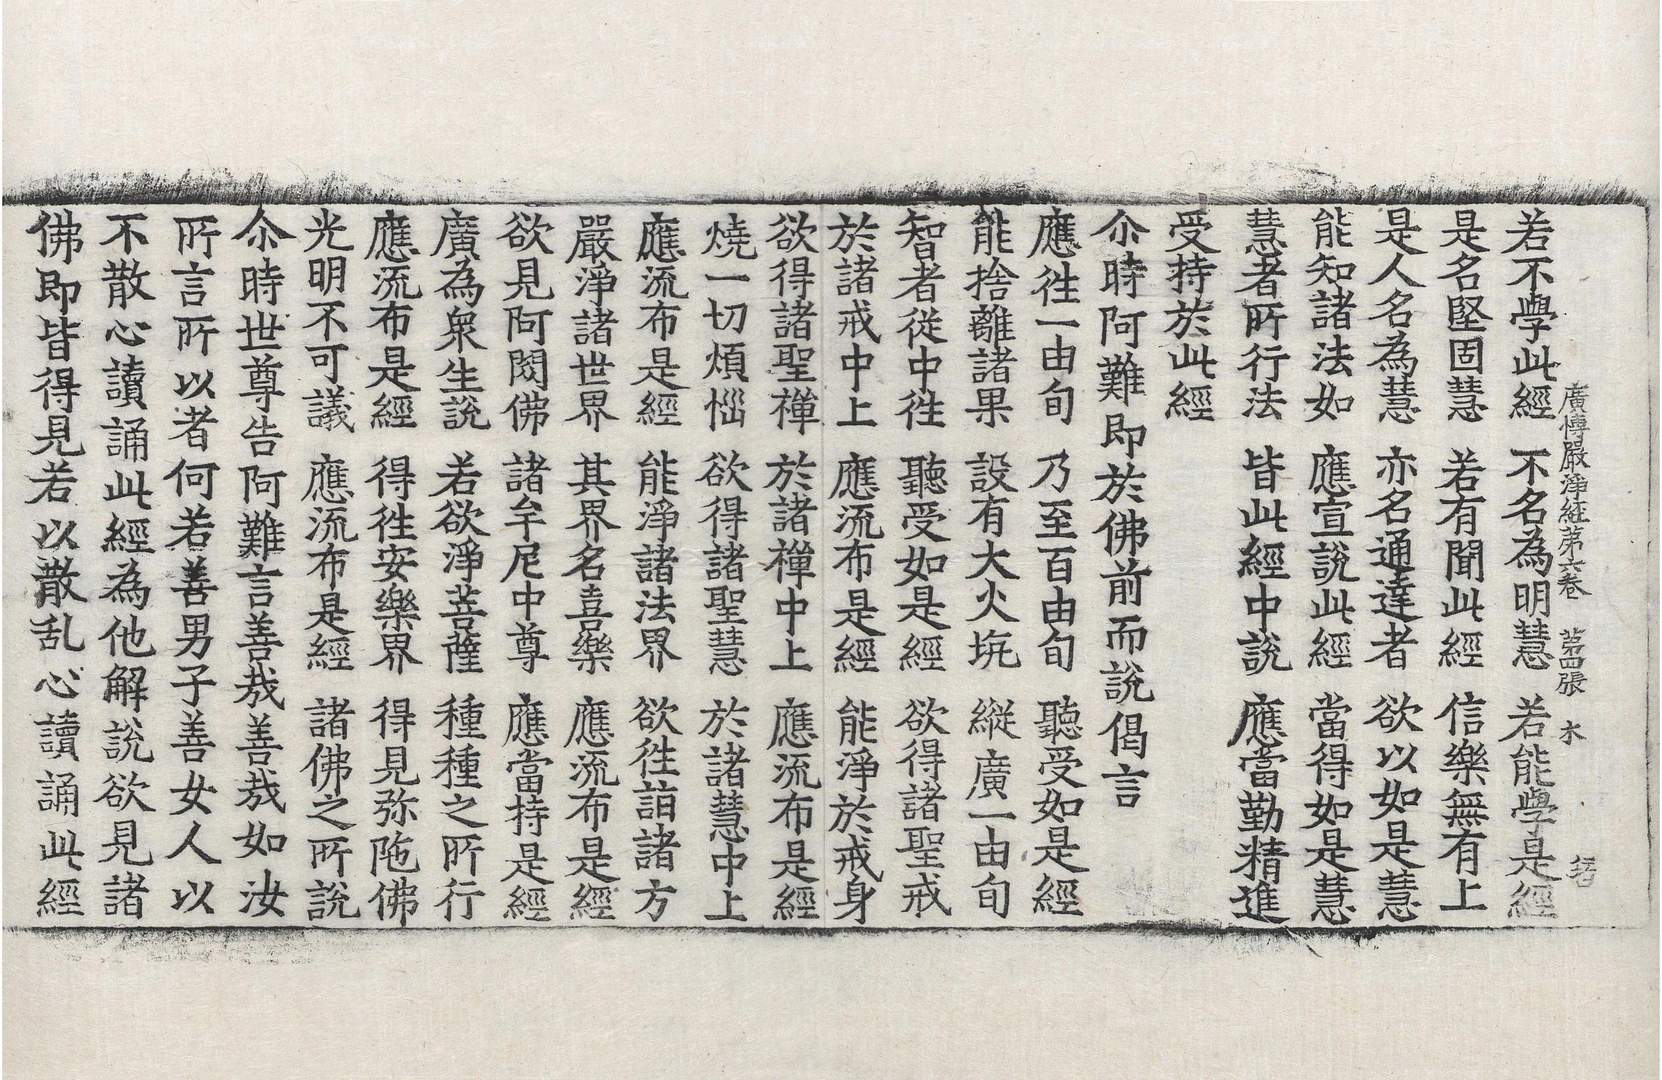 廣博嚴淨経第六卷　苐四張　木
若不學此經　不名為明慧　若能學是經
是名堅固慧　若有聞此經　信樂無有上
是人名為慧　亦名通達者　欲以如是慧
能知諸法如　應宣說此經　當得如是慧
慧者所行法　皆此經中說　應當勤精進
受持於此經
尒時阿難即於佛前而說偈言
應徃一由旬　乃至百由旬　聽受如是經
能捨離諸果　設有大火坑　縱廣一由旬
智者從中徃　聽受如是經　欲得諸聖戒
於諸戒中上　應流布是經　能淨於戒身
欲得諸聖禪　於諸禪中上　應流布是經
燒一切煩惱　欲得諸聖慧　於諸慧中上
應流布是經　能淨諸法界　欲徃詣諸方
嚴淨諸世界　其界名喜樂　應流布是經
欲見阿閦佛　諸牟尼中尊　應當持是經
廣為衆生說　若欲淨菩薩　種種之所行
應流布是經　得徃安樂界　得見弥陁佛
光明不可議　應流布是經　諸佛之所說
尒時世尊告阿難言善哉善哉如汝
所言所以者何若善男子善女人以
不散心讀誦此經為他解說欲見諸
佛即皆得見若以散乱心讀誦此經